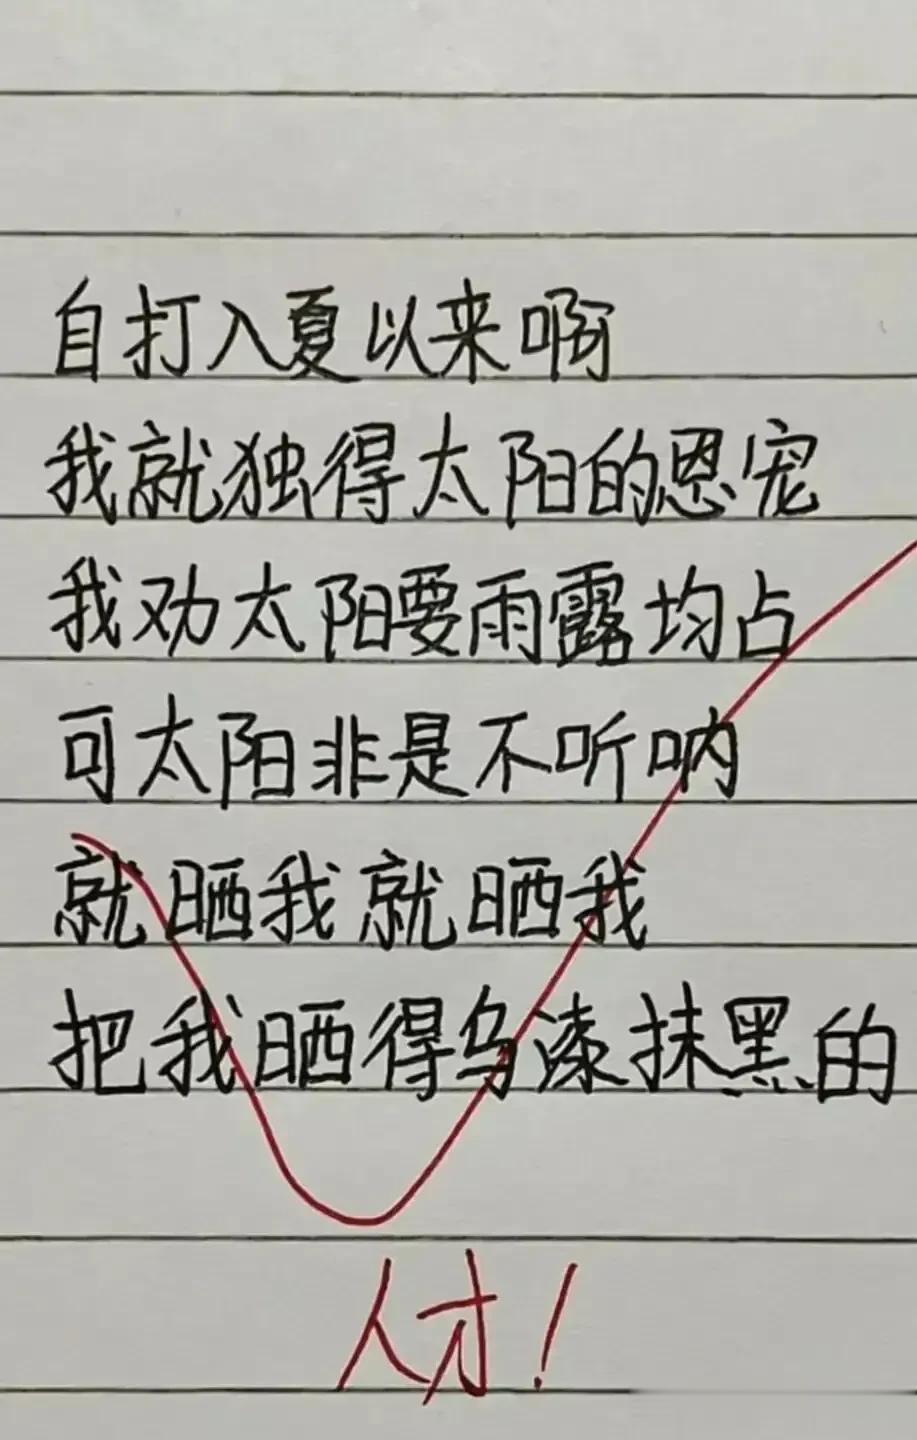 自打入夏以来啊
我就独得太阳的恩宠
我劝太阳要雨露均占
可太阳非是不听呐
就晒我就晒我
把我晒得乌漆抹黑的
人才！